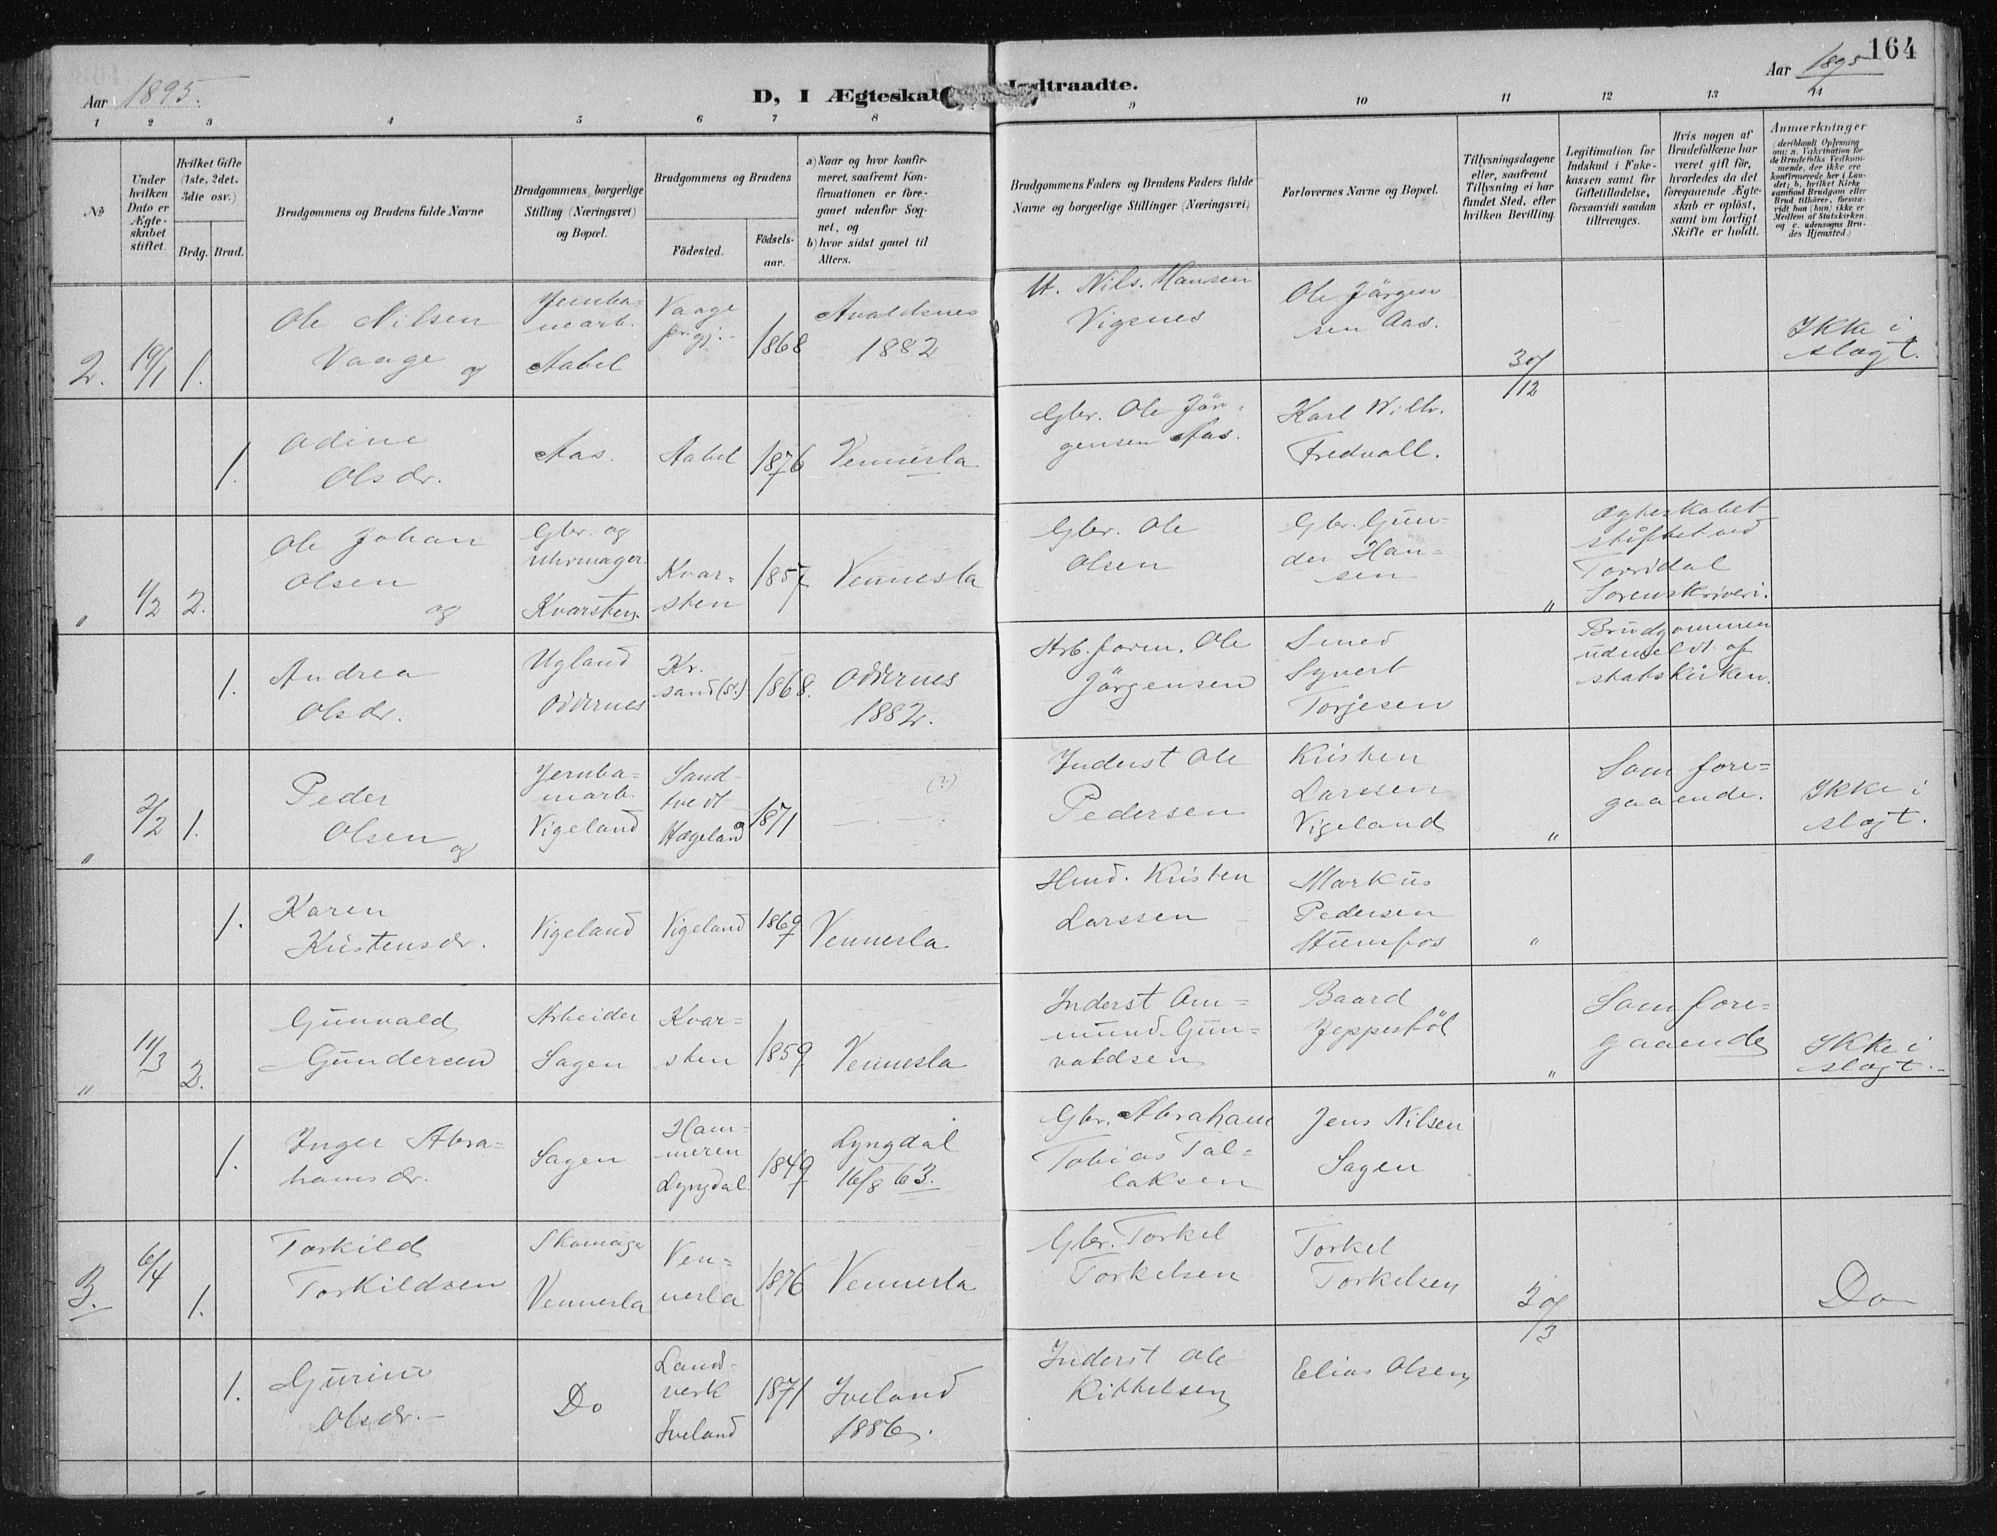 164
Aar 1895.
D, I Ægteskab Indtraadte.
Aar 1895
1 2 3 4 5 6 7 8 9 10 11 12 13 14
No
Under hvilken Dato er Ægteskabet stiftet.
Hvilket Gifte (1ste, 2det. 3die osv.)
Brdg. Brud.
Brudgommens og Brudens fulde Navne
Brudgommens borgerlige Stilling (Næringsvei) og Bopæl.
Brudgommens og Brudens
Födested. Födsels-aar.
a) Naar og hvor konfirmeret, saafremt Konfirmationen er foregaaet udenfor Sognet, og
b) hvor sidst gaaet til Alters.
Brudgommens Faders og Brudens Faders fulde Navne og borgerlige Stillinger (Næringsvei)
Forlovernes Navne og Bopæl.
Tillysningsdagene eller, saafremt Tillysning ei har fundet Sted, efter hvilken Bevilling.
Legitimation for Indskud i Enkekassen samt for Giftetilladelse, forsaavidt saadan tiltrænges.
Hvis nogen af Brudefolkene har været gift för, hvorledes da det foregaaende Ægteskab er oplöst, samt om lovligt Skifte er holdt.
Anmærkninger (deriblandt Oplysning om: a. Vakcination for de Brudefolks Vedkommende, der ikke ere konfirmerede her i Landet; b. hvilket Kirkesamfund Brudgom eller Brud tilhører, forsaavidt han (hun) ikke er Medlem af Statskirken. og c. udensogns Brudes Hjemsted.)
2. 19/1 1.
Ole Nilsen
Vaage og
Jernba-
nearb.
Aabel
Vaage
1868
Avaldsnes
1882
Nils Hansen
Vigenes
Ole Jörgen
sen Aas.
30/12
Ikke i
slægt.
1.
Odine
Olsdr.
Aas. Aabel 1876 Vennesla
Gbr. Ole Jör-
gensen Aas.
Karl Wilh.
Fredvall.
" 1/2 2.
Ole Johan
Olsen
og
Gbr. og
uhrmager
Kvarsten
Kvar-
sten
1857
Vennesla
Gbr. Ole
Olsen
Gbr. Gun-
der Han-
sen
"
Ægteskabet
stiftet ved
Torridal
Sorenskriveri.
1.
Andrea
Olsdr.
Ugland
Oddernes
Kr.
sand (S.)
1868.
Oddernes
1882.
Arb.form. Ole
Jörgensen
Smed
Syvert
Torjesen
Brudgommen
udmeldt af
statskirken.
" 2/2 1.
Peder
Olsen og
Jernba-
nearb.
Vigeland
Sand-
tvedt
Hægeland
1871
(?)
Inderst Ole
Pedersen
Kristen
Larssen
Vigeland
"
Som fore-
gaaende.
Ikke i
slægt.
1.
Karen
Kristensdr.
Vigeland Vigeland 1869 Vennesla
Hmd. Kristen
Larssen
Markus
Pedersen
Hunsfos
"
" 14/3 2.
Gunvald
Gundersen
Arbeider
Sagen
Kvar-
sten
1859
Vennesla
Inderst Am-
mund Gun-
valdsen
Baard
Jeppestöl
"
Som fore-
gaaende
Ikke i
slægt.
1.
Inger Abra-
hamsdr.
Sagen
Ham-
meren
Lyngdal.
1849
Lyngdal
16/8 63.
Gbr. Abraham
Tobias Tal-
laksen
Jens Nilsen
Sagen
3. 6/4 1.
Torkild
Torkildsen
Skomager
Vennesla
Ven-
nesla
1876
Vennesla
Gbr. Torkel
Torkelsen
Torkel
Torkelsen
30/3
Do
1.
Gurine
Olsdr.
Do
Land-
verk
Iveland
1871
Iveland
1886.
Inderst Ole
Kittelsen
Elias Olsen